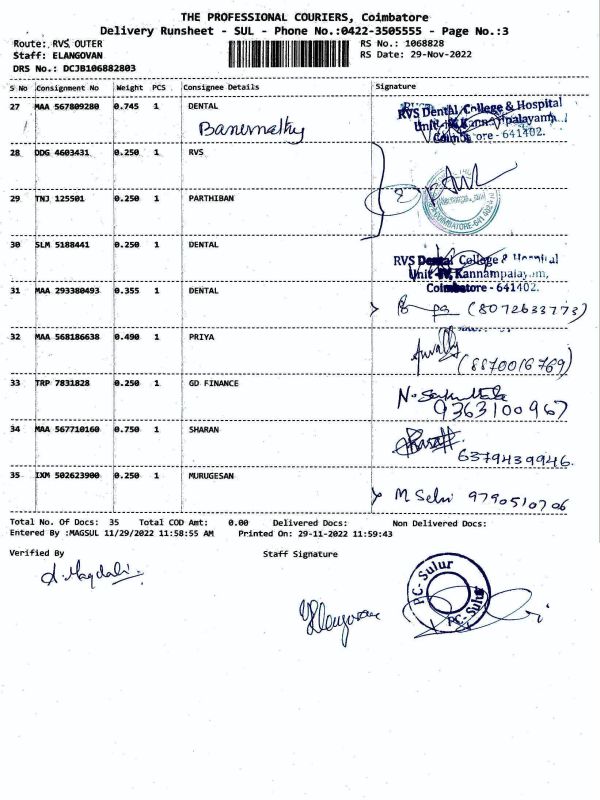 THE PROFESSIONAL COURIERS, Coimbatore
Delivery Runsheet - SUL - Phone No.:0422-3505555 - Page No.:3
Route: RVS, OUTER RS No.: 1068828
Staff: ELANGOVAN RS Date: 29-Nov-2022
DRS No.: DCJB106882803
S No Consignment No Weight PCS Consignee Details Signature
27 MAA 567809280 0.745 1 DENTAL RVS Dental College & Hospital
Unit-IV, Kannampalayam,
Coimbatore - 641402.
28 DDG 4603431 0.250 1 RVS
29 TNJ 125501 0.250 1 PARTHIBAN
COIMBATORE-641 402
30 SLM 5188441 0.250 1 DENTAL RVS Dental College & Hospital
Unit-IV, Kannampalayam,
Coimbatore - 641402.
31 MAA 293380493 0.355 1 DENTAL (8072633773)
32 MAA 568186638 0.490 1 PRIYA (8870016769)
33 TRP 7831828 0.250 1 GD FINANCE
9363100967
34 MAA 567710160 0.750 1 SHARAN
6379439946.
35 IXM 502623900 0.250 1 MURUGESAN M Selvi 9790510706
Total No. Of Docs: 35 Total COD Amt: 0.00 Delivered Docs: Non Delivered Docs:
Entered By :MAGSUL 11/29/2022 11:58:55 AM Printed On: 29-11-2022 11:59:43
Verified By Staff Signature
PC-Sulur
PC-Sulur